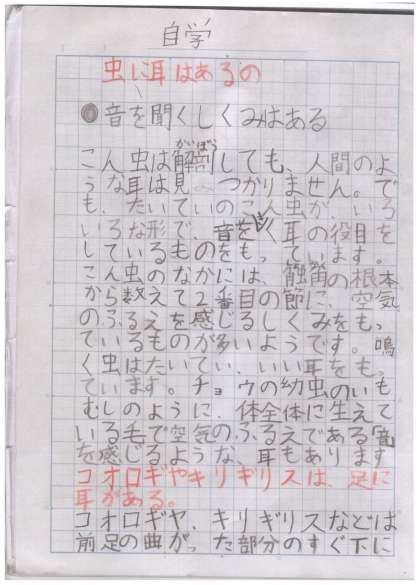 自学
虫に耳はあるの
●音を聞くしくみはある
がぼう
こん虫は解剖しても、人間のよ
うな耳は見つかりません。で
も、たいていのこん虫が、いろ
いろな形で、音をきく耳の役目を
しているものをもっています。
こん虫のなかには、触笛の根本
から数えて2番目の節に、空気
のふるえを感じるしくみをも、
ているものが多いようです。鳴
く虫はたいてい、いい耳をも、
ています。チョウの幼虫のいも
むしのように、体全体に生えて
いる毛で空気のふるえである「音」
を感じるような、耳もあります
コオロギヤキリギリスは、足に
耳がある。
コオロギヤ、キリギリスなどは
前足の曲がった部分のすぐ下に